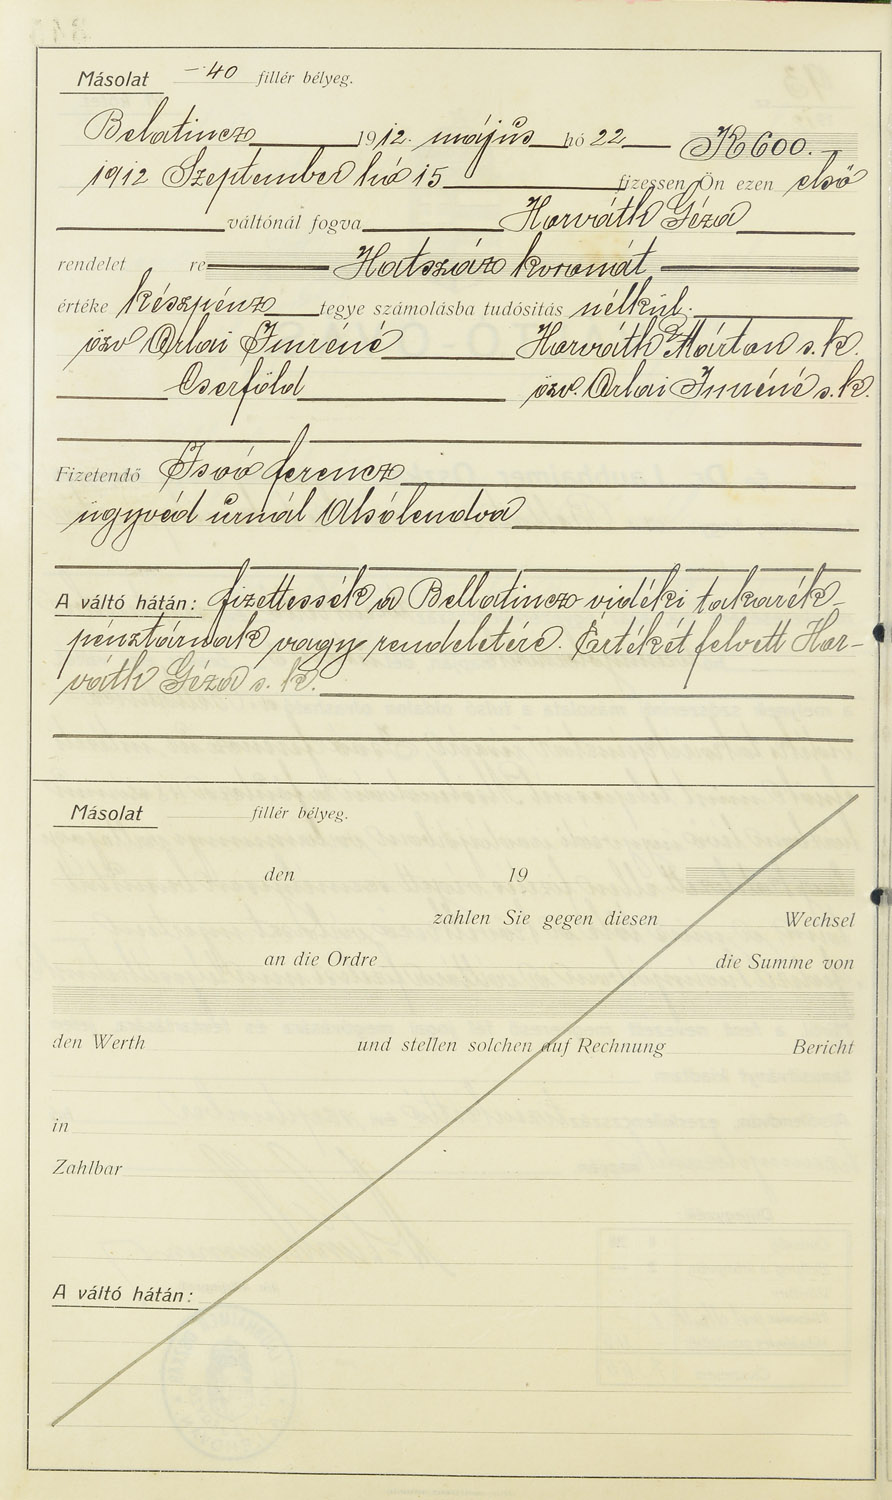 Másolat -40 fillér bélyeg.
Belatincz 1912. május hó 22 K 600.-
1912 Szeptember hó 15 fizessen Ön ezen első
váltónál fogva Horváth Géza
rendelet re Hatszáz koronát
értéke készpénz tegye számolásba tudósitás nélkül.
özv Orlai Imréné Horváth Márton s. k.
Cserföld özv. Orlai Imréné s. k.
Fizetendő Isoó ferencz
ügyvéd úrnál Alsólendva
A váltó hátán: fizettessék a Bellatincz vidéki takarék-
pénztárnak vagy rendeletére. Értékét felvett Hor-
váth Géza s. k.
Másolat fillér bélyeg.
den 19
zahlen Sie gegen diesen Wechsel
an die Ordre die Summe von
den Werth und stellen solchen auf Rechnung Bericht
in
Zahlbar
A váltó hátán: